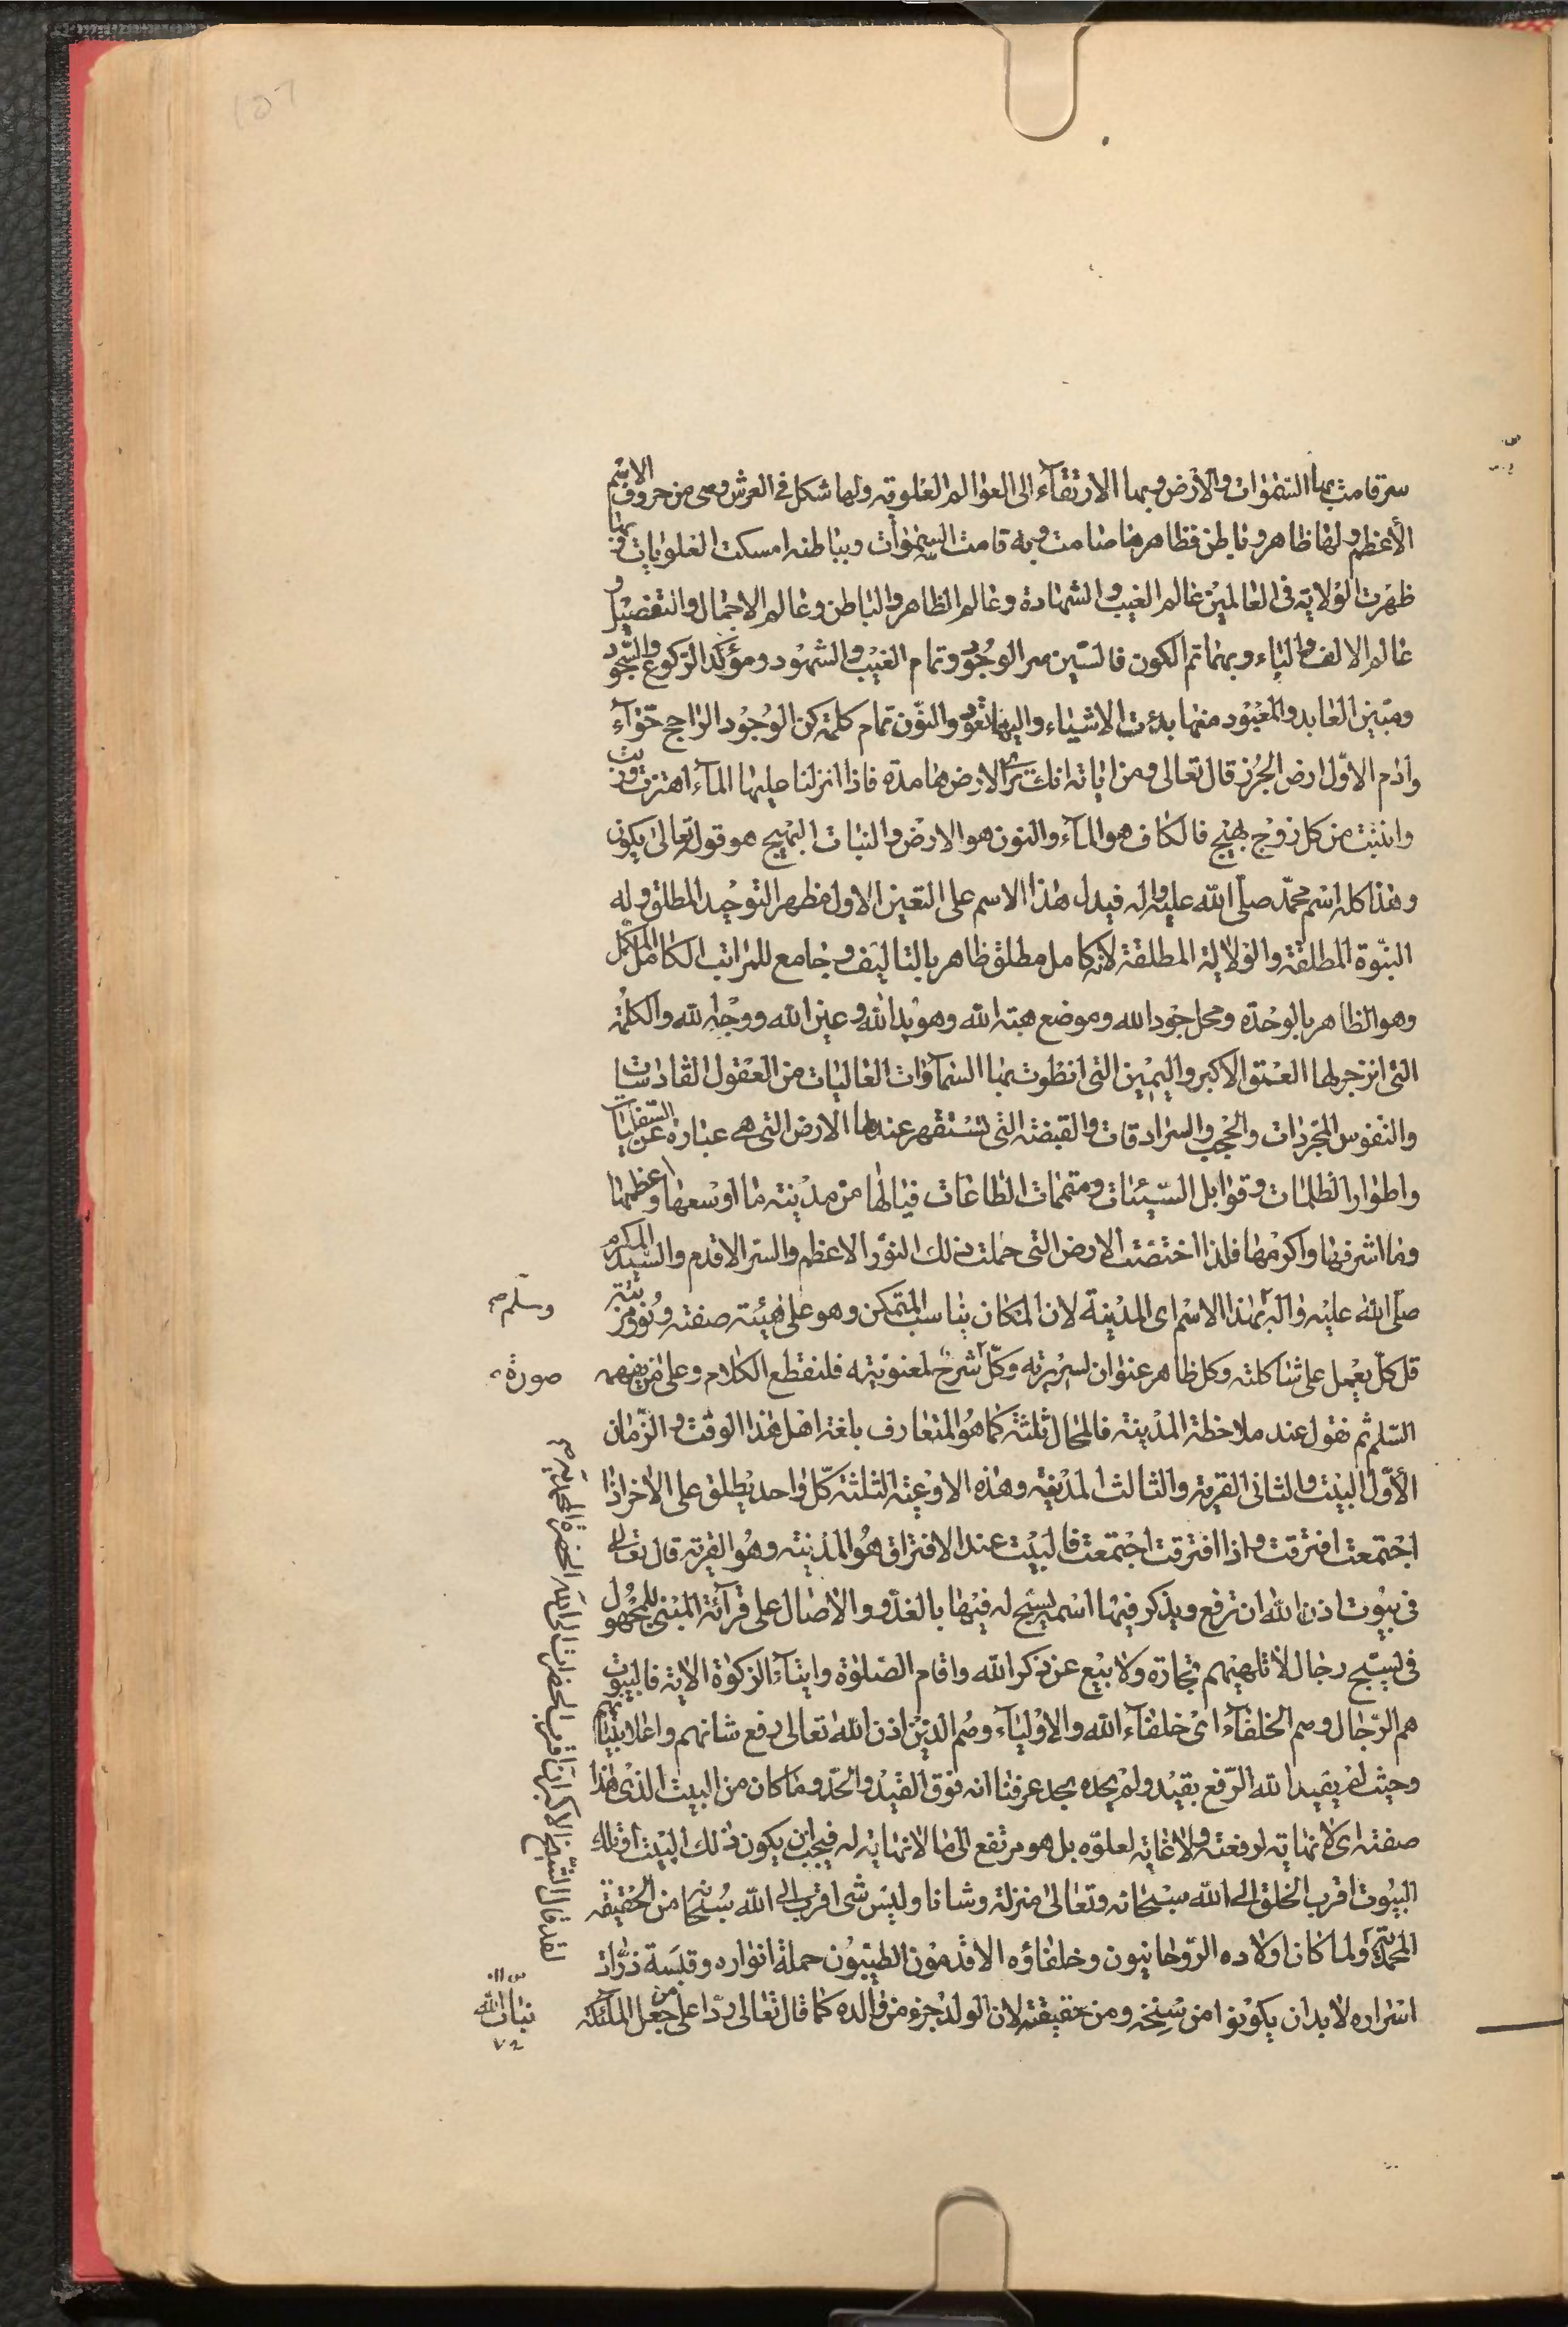 سر قامت بها السّمٰوات والأرض وبها الارتقآء الى العوالم العلوية ولها شكل فى العرش وهى من حروف الاسم
الأعظم ولها ظاهر وباطن فظاهرها صامت وبه قامت السمٰوات وبباطنه امسكت العلويات وبها
ظهرت الولاية فى العالمين عالم الغيب والشهادة وعالم الظاهر والباطن وعالم الاجمال والتفصيل و
عالم الالف والباء وبهما تم الكون فالسّين سر الوجود وتمام الغيب والشهود ومؤكد الركوع والسّجود
ومبين العابد والمعبود منها بدءت الاشياء واليها تعود والنّون تمام كلمة كن الوجود الراجح حوّآء
وآدم الاوّل ارض الجرز قال تعالى ومن اياته انك ترى الارض هامدة فاذا انزلنا عليها المآء اهتزت وربت
وانبتت من كل زوج بهيج فالكاف هو المآء والنون هو الارض والنبات البهيج هو قوله تعالى يكون
وهذا كله اسم محمّد صلّى الله عليه واله فيدل هذا الاسم على التعين الاول مظهر التوحيد المطلق وله
النبّوة المطلقة والولاية المطلقة لانه كامل مطلق ظاهر بالتاليف وجامع للمراتب الكامل المكمل
وهو الظاهر بالوحدة ومحل جود الله وموضع هبة الله وهو يد الله وعين الله ووجه الله والكلمة
التى انزجر لها العمق الاكبر واليمين التى انطوت بها السمآوات العاليات من العقول القادسات
والنفوس المجردات والحجب والسرادقات والقبضة التى تستقهر عندها الارض التى هى عبارة عن السّفليات
واطوار الظلمات وقوابل السّيئات ومتممات الطاعات فيالها من مدينة ما اوسعها واعظمها
وما اشرفها واكرمها فلذا اختصت الارض التى حملت ذلك النور الاعظم والسر الاقدم والسّيد المكرم
صلّى الله عليه وآله بهذا الاسم اى المدينة لان المكان يناسب المتمكن وهو على هيئة صفته ونورنيته
وسلم صح
قل كلّ يعمل على شاكلته وكل ظاهر عنوان لسريرته وكلّ شرح لمعنويته فلنقطع الكلام وعلى من يفهمه
صورة
السّلم ثم نقول عند ملاحظة المدينة فالمحال ثلثة كما هو المتعارف بلغة اهل هذا الوقت والزّمان
الأوّل البيت والثانى القرية والثالث المدينة وهذه الاوعية الثلثة كلّ واحد يطلق على الاخر اذا
اجتمعت افترقت واذا افترقت اجتمعت فالبيت عند الافتراق هو المدينة وهو القرية قال تعالى
فى بيوت اذن الله ان ترفع ويذكر فيها اسمه يسبّح له فيها بالغدّو والاصال على قرآئة المبنى للمجهول
فى يسبّح رجال لا تلهيهم تجارة ولا بيع عن ذكر الله واقام الصلوٰة وايتآء الزكوٰة الاية فالبيوت
هم الرّجال وهم الخلفآء اى خلفآء الله والاوليآء وهم الذين اذن الله تعالى رفع شانهم واعلا بنيانهم
وحيث لم يقيد الله الرّفع بقيد ولم يحده بحد عرفنا انه فوق القيد والحدّ وما كان من البيت الذى هذا
صفته اى لا نهاية لرفعته ولا غاية لعلوّه بل هو مرتفع الى ما لا نهاية له فيجب ان يكون ذلك البيت او تلك
البيوت اقرب الخلق الى الله سبحانه وتعالى منزلة وشانا وليس شى اقرب الى الله سبحانه من الحقيقة
المحمدية ولما كان اولاده الرّوحانيون وخلفاؤه الاقدمون الطيبون حملة انواره وقبسة ذرّات
اسراره لا بد ان يكونوا من سنخه ومن حقيقته لان الولد جزء من والده كما قال تعالى ردّا على من جعل الملٰئكة
بنات الله